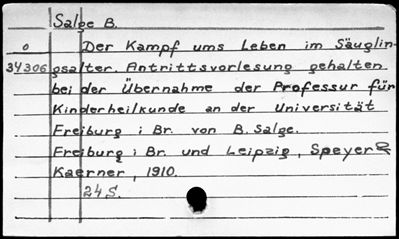 Salge B.
O Der Kampf ums Leben im Säuglin-
34306 gsalter. Antrittsvorlesung gehalten
bei der Übernahme der Professur für
Kinderheilkunde an der Universität
Freiburg i Br. von B. Salge.
Freiburg i Br. und Leipzig, Speyer &
Kaerner, 1910.
24 S.